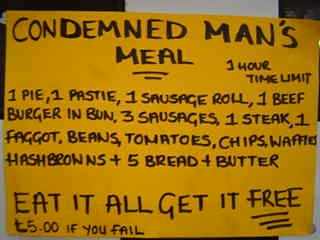 CONDEMNED MAN'S
MEAL
1 HOUR
TIME LIMIT
1 PIE, 1 PASTIE, 1 SAUSAGE ROLL, 1 BEEF
BURGER IN BUN, 3 SAUSAGES, 1 STEAK, 1
FAGGOT, BEANS, TOMATOES, CHIPS, WAFFLES
HASHBROWNS + 5 BREAD + BUTTER
EAT IT ALL GET IT FREE
£5.00 IF YOU FAIL